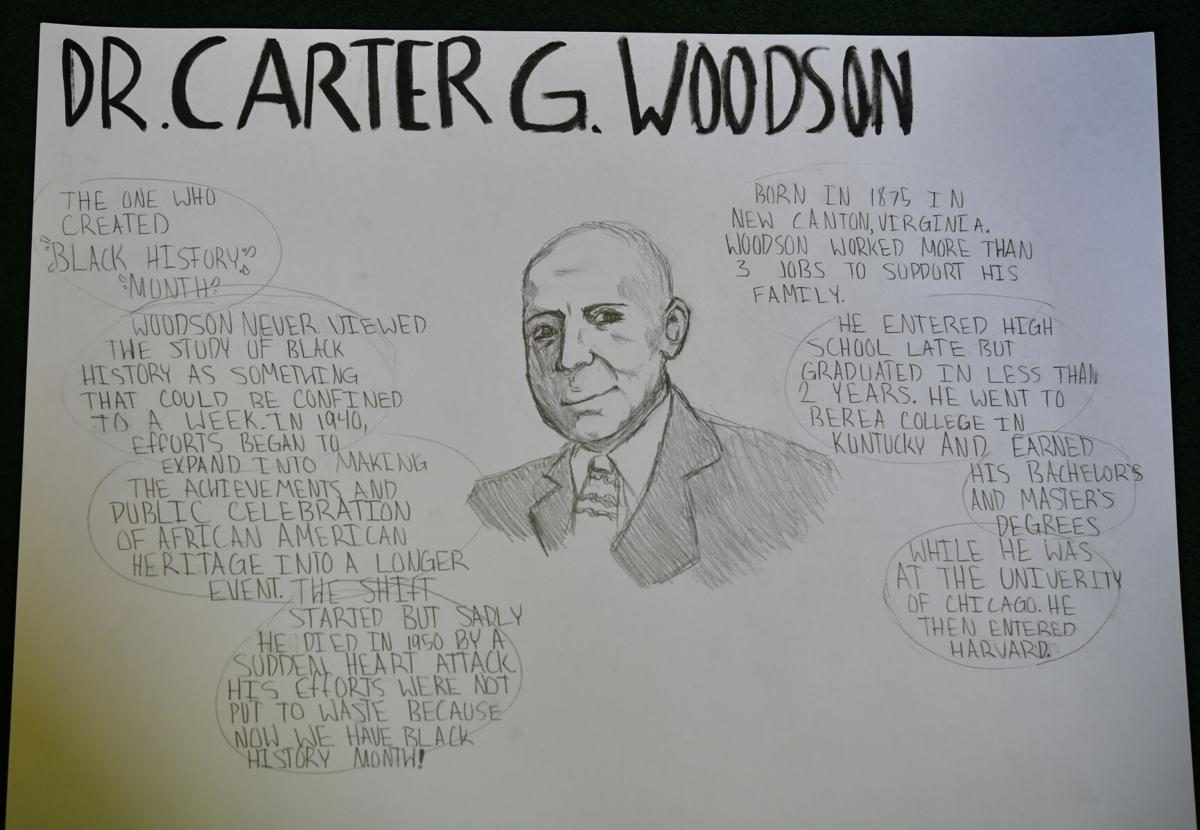 DR. CARTER G. WOODSON
THE ONE WHO
CREATED
"BLACK HISTORY"
"MONTH"
WOODSON NEVER VIEWED
THE STUDY OF BLACK
HISTORY AS SOMETHING
THAT COULD BE CONFINED
TO A WEEK. IN 1940,
EFFORTS BEGAN TO
EXPAND INTO MAKING
THE ACHIEVEMENTS AND
PUBLIC CELEBRATION
OF AFRICAN AMERICAN
HERITAGE INTO A LONGER
EVENT. THE SHIFT
STARTED BUT SADLY
HE DIED IN 1950 BY A
SUDDEN HEART ATTACK.
HIS EFFORTS WERE NOT
PUT TO WASTE BECAUSE
NOW WE HAVE BLACK
HISTORY MONTH!
BORN IN 1875 IN
NEW CANTON, VIRGINIA.
WOODSON WORKED MORE THAN
3 JOBS TO SUPPORT HIS
FAMILY.
HE ENTERED HIGH
SCHOOL LATE BUT
GRADUATED IN LESS THAN
2 YEARS. HE WENT TO
BEREA COLLEGE IN
KUNTUCKY AND EARNED
HIS BACHELOR'S
AND MASTER'S
DEGREES
WHILE HE WAS
AT THE UNIVERITY
OF CHICAGO. HE
THEN ENTERED
HARVARD.